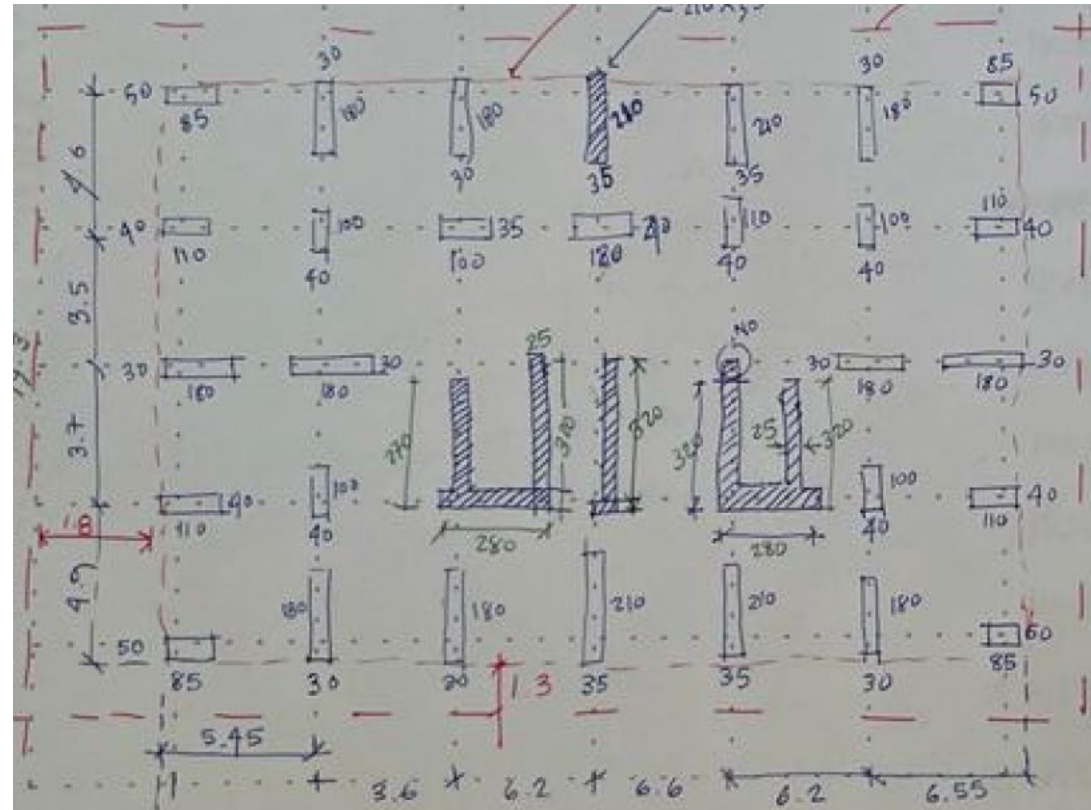 30 30 85
50 85 180 180 210 210 180 50
30 35 35
4.6
110
40 100 35 110 100 40
110 40 100 180 40 40
3.5
25 40
30 180 180 30 30 180 180 30
3.7
270 320 320 320 25 320
100 40 100 40
110 40 280 280 40 110
1.8
4.9
180 180 210 210 180
50 85 30 30 1.3 35 35 30 85
5.45
3.6 6.2 6.6 6.2 6.55